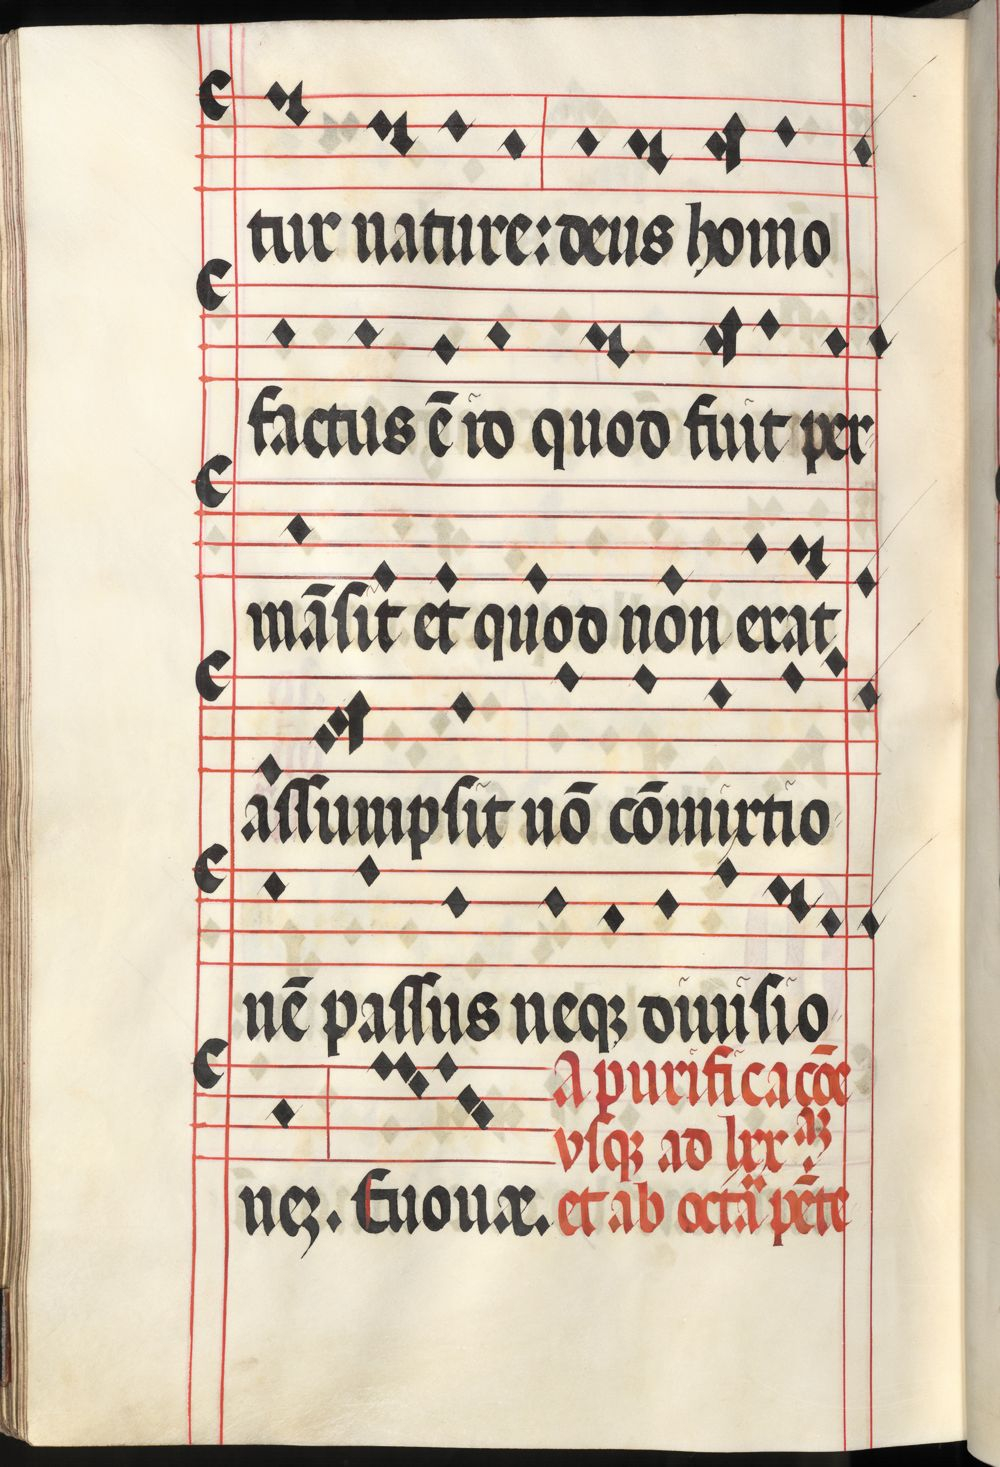 tur nature: deus homo
factus ē id quod fuit per
māsit et quod non erat
assumpsit nō cōmixtio
nē passus neqꝫ diuisio
neꝫ. Euouae. A purificacōe
vsqꝫ ad lxx
et ab octa pēte